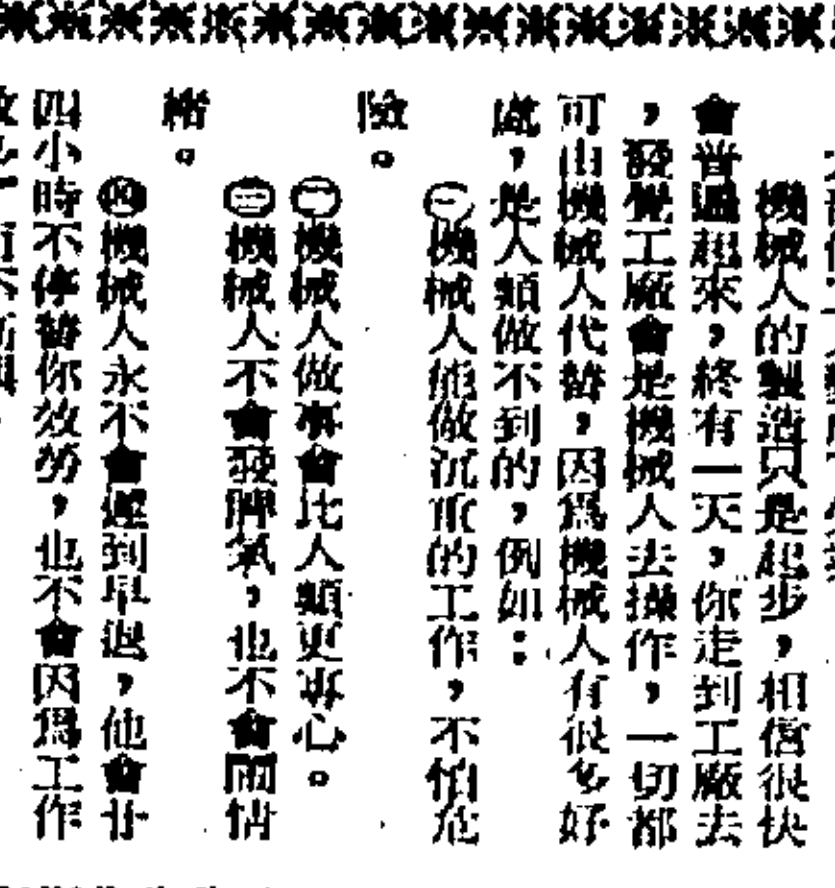 機械人的製造只是起步，相信很快
會普遍起來，終有一天，你走到工廠去
，發覺工廠會是機械人去操作，一切都
可由機械人代替，因爲機械人有很多好
處，是人類做不到的，例如：
㊀機械人能做沉重的工作，不怕危
險。
㊁機械人做事會比人類更專心。
㊂機械人不會發脾氣，也不會鬧情
緒。
㊃機械人永不會遲到早退，他會廿
四小時不停替你效勞，也不會因爲工作